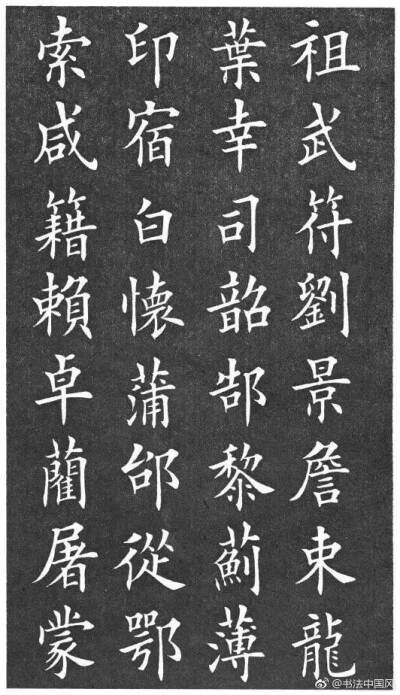 祖武符劉景詹束龍
葉幸司韶郜黎薊薄
印宿白懷蒲邰從鄂
索咸籍賴卓藺屠蒙
@书法中国风